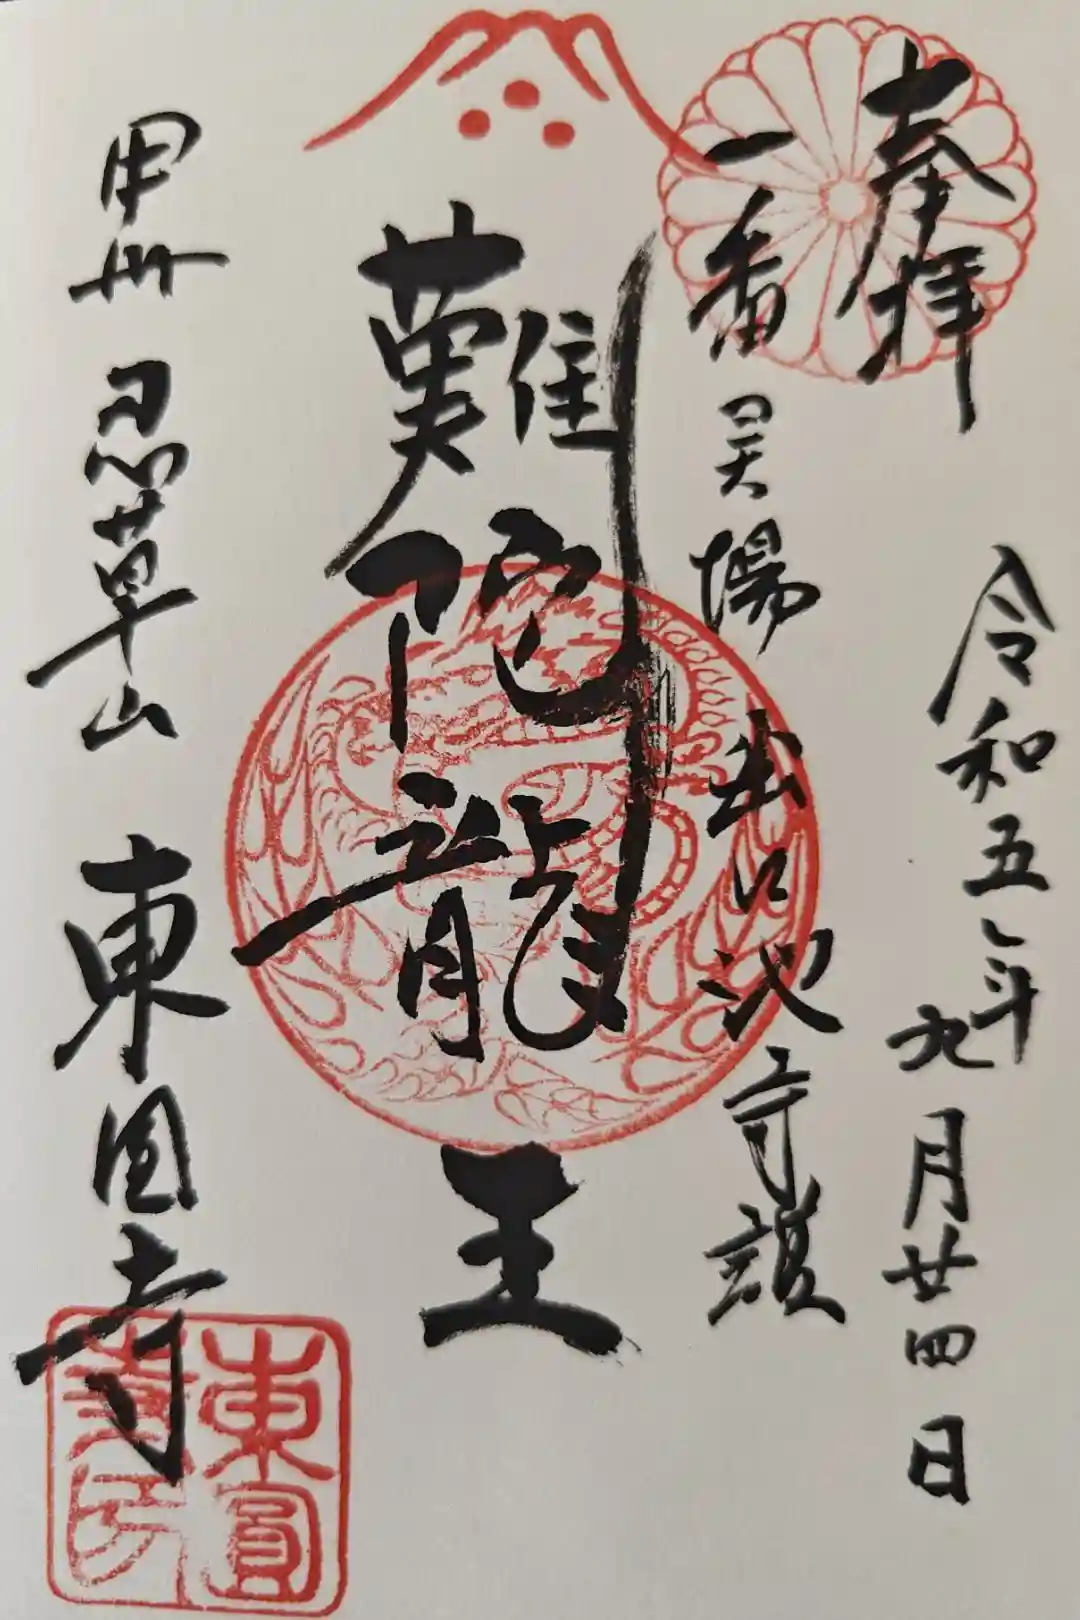 奉拝
令和五年九月廿四日
一番 霊場 出口池守護
難陀龍王
甲州 忍草山 東圓寺
東圓
寺印